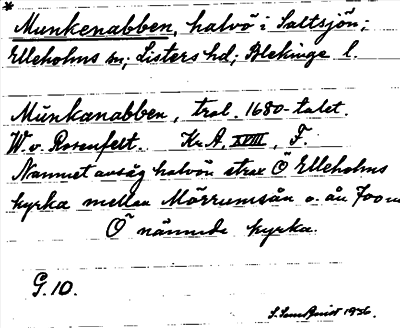 * Munkenabben, halvö i Saltsjön;
Elleholms sn; Listers hd; Blekinge l.
Munkanabben, trol. 1680-talet.
W. v. Rosenfelt. Kr. A, XVIII, F.
Namnet avsåg halvön strax Ö Elleholms
kyrka mellan Mörrumsån o. ån 700 m
Ö nämnda kyrka.
G. 10.
1936.